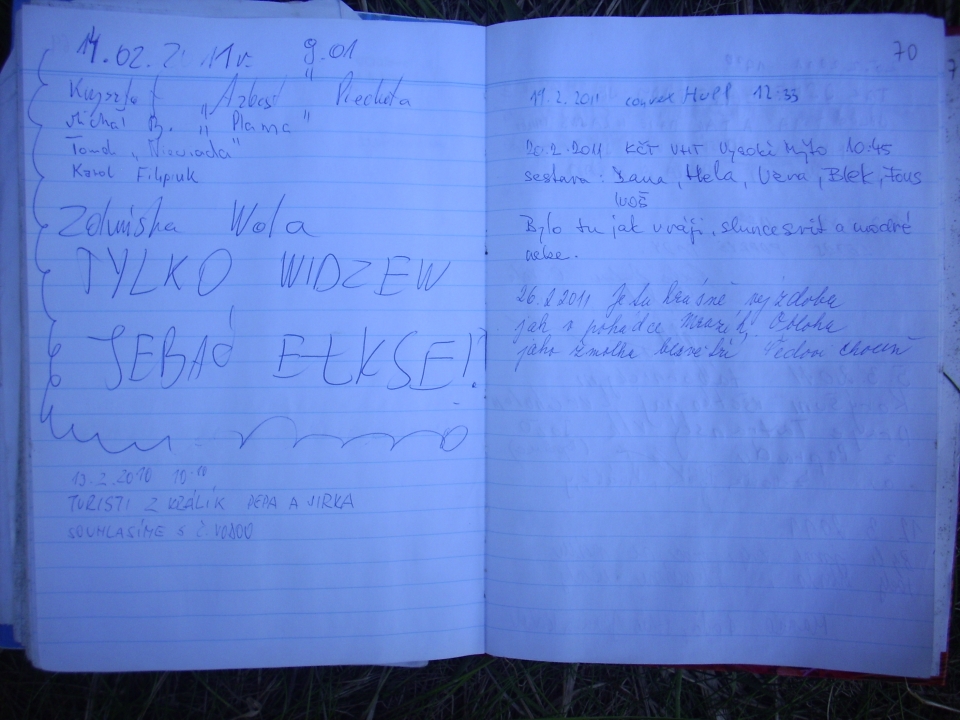 14.02.2011r. 9.01
Krzysztof "Azbest" Piechota
Michał B. "Plama"
Tomek "Niewiada"
Karol Filipiuk
Zduńska Wola
TYLKO WIDZEW
JEBAĆ EŁKSE!?
19.2.2010 10:10
TURISTI Z KRÁLÍK PEPA A JIRKA
SOUHLASÍME S Č. VODOO
70
19.2.2011 HUPP 12:33
20.2.2011 KČT VHT Vysoké Mýto 10:45
sestava: Jana, Hela, Věra, Blek, Fous
Luoš
Bylo tu jak v ráji, slunce svit a modré
nebe.
26.2.2011 Je tu krásně výzdoba
jak v pohádce Mrazík, Obloha
jako šmolka bezvětří Choceň